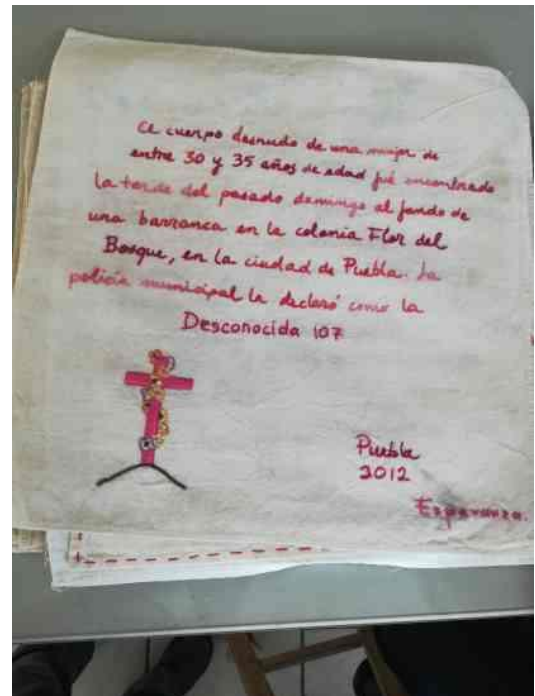 El cuerpo desnudo de una mujer de
entre 30 y 35 años de edad fué encontrado
la tarde del pasado domingo al fondo de
una barranca en la colonia Flor del
Bosque, en la ciudad de Puebla. La
policía municipal la declaró como la
Desconocida 107
Puebla
2012
Esperanza.